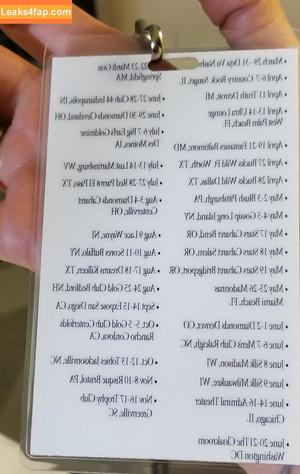 Leaks4fap.com
• March 29-31 Deja Vu
• April 6-7 Country Rock, Sauget, IL
• April 11 Truth Detroit, MI
• April 13-14 Ultra Lounge
West Palm Beach, FL
19-21 Fantasies Baltimore, MD
• April 27 Bucks Wild Ft. Worth, TX
• April 28 Bucks Wild Dallas, TX
• May 2-3 Blush Pittsburgh, PA
• May 4-5 Gossip Long Island, NY
• May 17 Stars Cabaret Bend, OR
• May 18 Stars Cabaret Salem, OR
• May 19 Stars Cabaret Bridgeport, OR
• May 25-26 Madonnas
Miami Beach, FL
• June 1-2 Diamonds Denver, CO
• June 6-7 Mens Club Raleigh, NC
• June 8 Silk Madison, WI
• June 9 Silk Milwaukee, WI
• June 14-16 Admiral Theater
Chicago, IL
• June 20-21 The Cloakroom
Washington DC
22-23 Mardi Gras
Springfield, MA
• June 27-28 Club 44 Indianapolis, IN
• June 29-30 Diamonds Cleveland, OH
• July 6-7 Big Earls Goldmine
Des Moines, IA
• July 13-14 Lust Martinsburg, WV
• July 27-28 Red Parrot El Paso, TX
• Aug 3-4 Diamonds Cabaret
Centerville, OH
• Aug 9 Lace Wayne, NJ
• Aug 10-11 Scores Buffalo, NY
• Aug 17-18 Dreams Killeen, TX
• Aug 24-25 Gold Club Bedford, NH
• Sept 14-15 Expose San Diego, CA
• Oct. 5-6 Gold Club Centerfolds
Rancho Cordova, CA
• Oct. 12-13 Tobies Jacksonville, NC
• Nov 8-10 Risque Bristol, PA
• Nov 16-17 Trophy Club
Greenville, SC